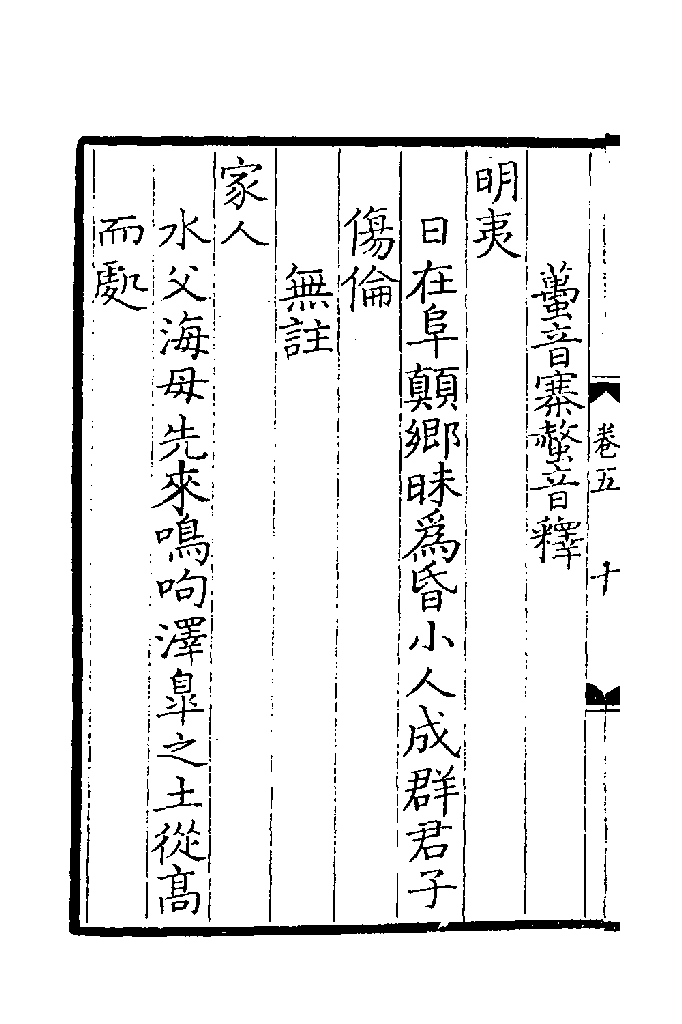 卷五
十
蠆音寨螫音釋
明夷
日在阜顛鄉昧爲昏小人成群君子
傷倫
無註
家人
水父海母先來鳴呴澤臯之土從高
而處